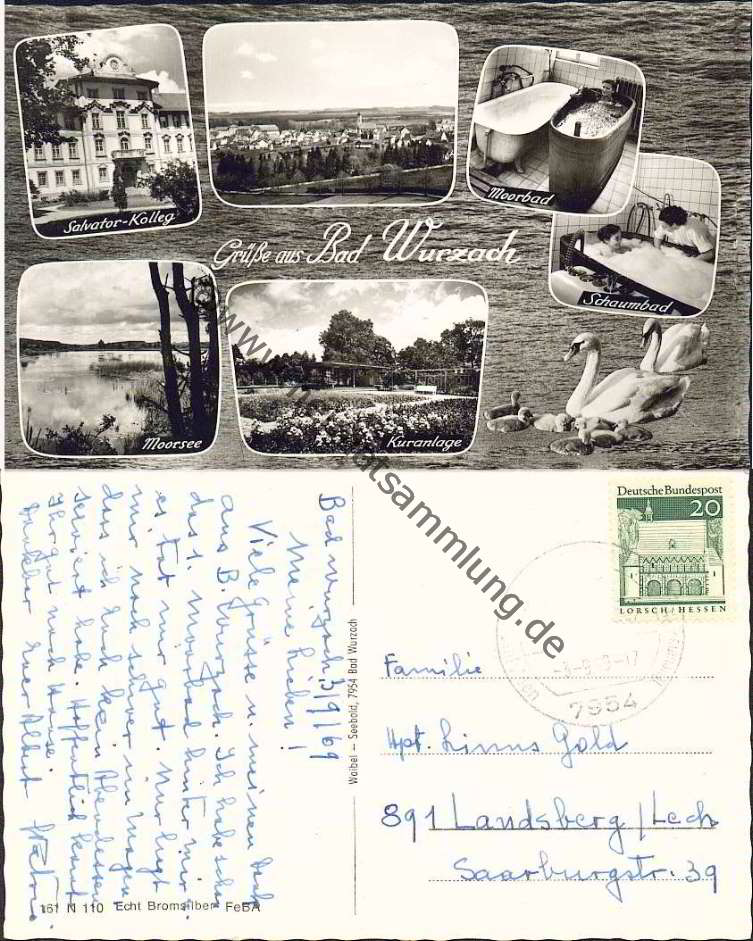 Salvator-Kolleg
Moorbad
Schaumbad
Grüße aus Bad Wurzach
Moorsee
Kuranlage
www.heimatsammlung.de
Bad Wurzach, 3/9/69
Meine Lieben!
Viele Grüsse u. meinen Dank
aus B. Wurzach. Ich habe schon
das 1. Moorbad hinter mir,
es tut mir gut. Nur liegt
mir noch schwer im Magen
dass ich Euch kein Abendessen
serviert habe. Hoffentlich kamt
Ihr gut nach Hause.
Euer Albert
Waibel – Seebold, 7954 Bad Wurzach
161 N 110 Echt Bromsilber FeBA
Deutsche Bundespost
20
LORSCH/HESSEN
7954
Familie
Hpt. Linus Gold
891 Landsberg/Lech
Saarburgstr. 39